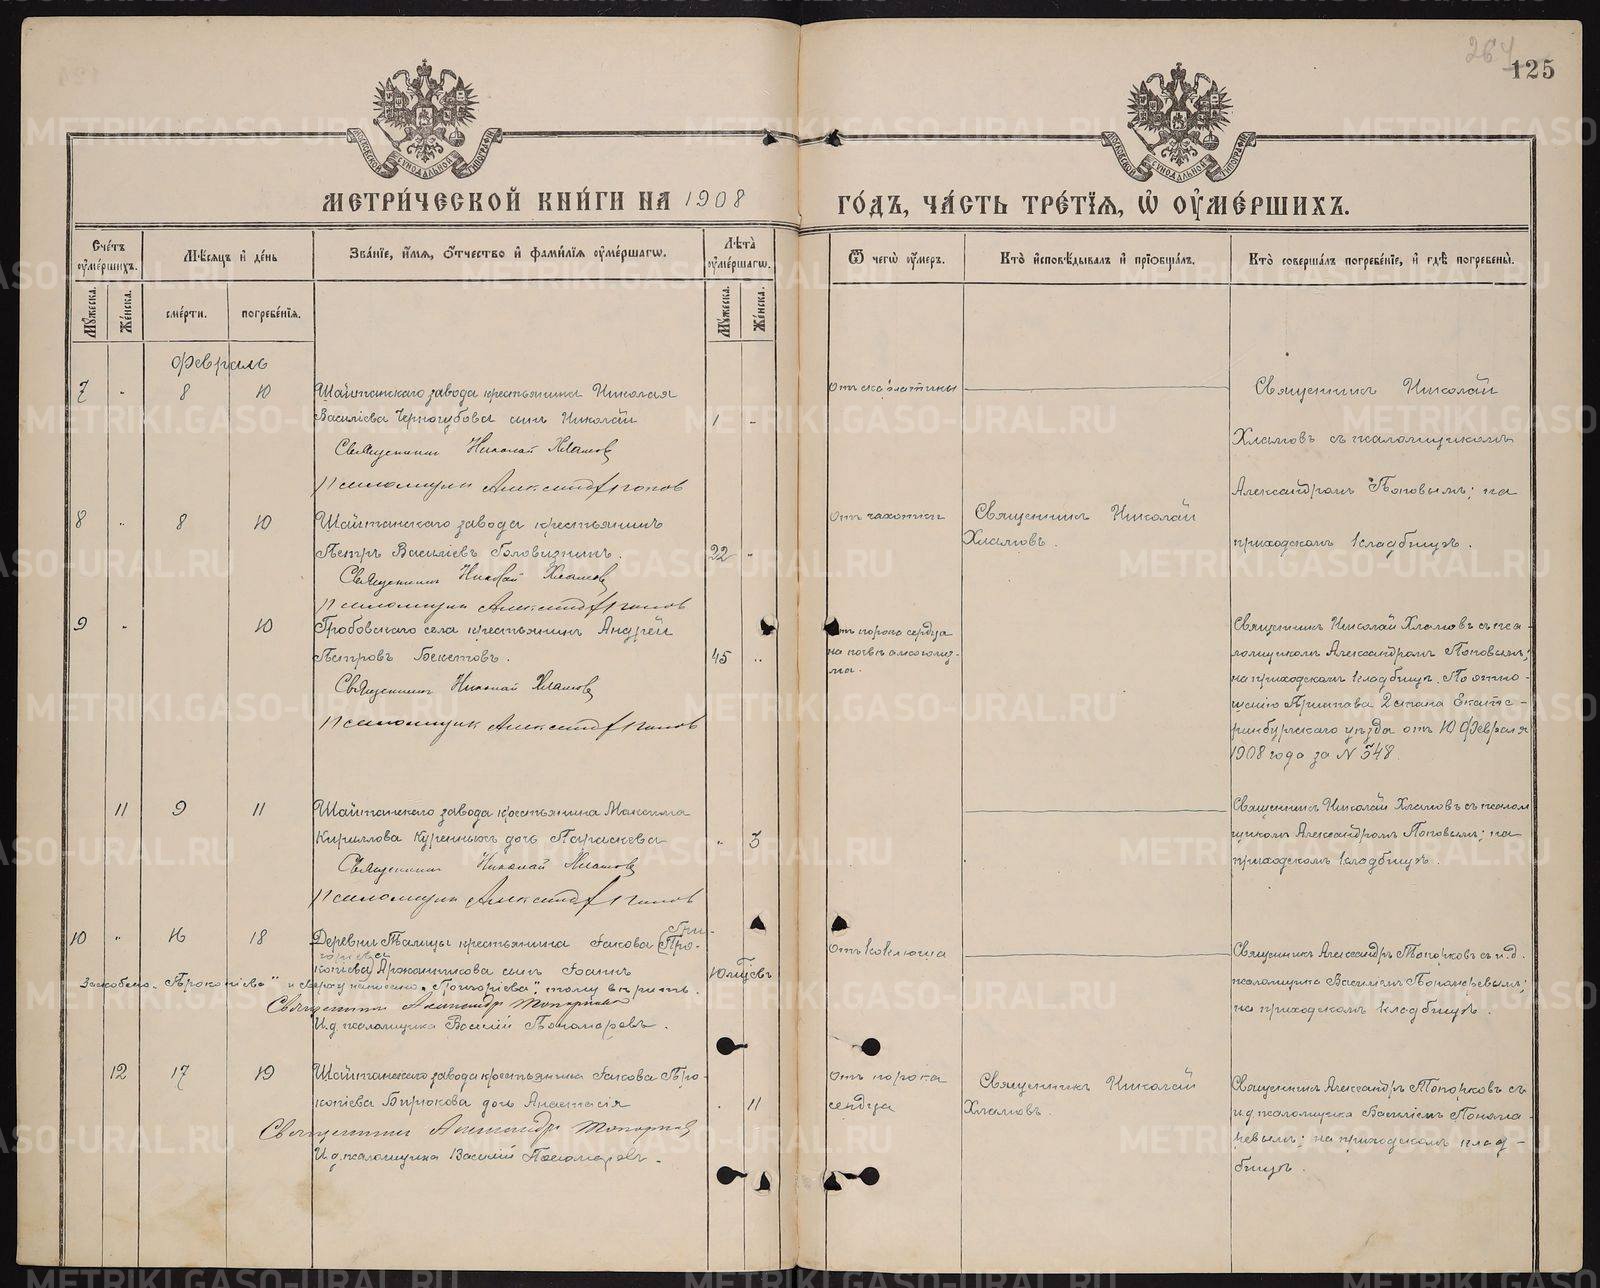 264
125
МОСКОВСКОЙ СѴНОДАЛЬНОЙ ТИПОГРАФІИ
МОСКОВСКОЙ СѴНОДАЛЬНОЙ ТИПОГРАФІИ
МЕТРИ́ЧЕСКОЙ КНИ́ГИ НА 1908
ГО́ДЪ, ЧА́СТЬ ТРЕ́ТІѦ, Ѡ ОУМЕ́РШИХЪ.
Сче́тъ оуме́ршихъ.
Мѣ́сяцъ и де́нь
Зва́ніе, и́мя, о́тчество и фами́лія оуме́ршагѡ.
Лѣта̀ оуме́ршагѡ.
Ѿ чегѡ̀ оу́меръ.
Кто̀ и҆сповѣ́дывалъ и҆ прїобща́лъ.
Кто̀ соверша́лъ погребе́нїе, и҆ гдѣ̀ погребены̀.
Му́жеска.
Же́нска.
сме́рти.
погребе́нїя.
Му́жеска.
Же́нска.
Февраль
7 " 8 10 Шайтанскаго завода крестьянина Николая
Василіева Черногубова сынъ Николай 1 -
Священникъ Николай Хламовъ
Псаломщикъ Александръ Поповъ
отъ скарлатины
Священникъ Николай
Хламовъ съ псаломщикомъ
Александромъ Поповымъ; на
приходскомъ кладбищѣ.
8 " 8 10 Шайтанскаго завода крестьянинъ
Петръ Василіевъ Головизнинъ. 22 -
Священникъ Николай Хламовъ
Псаломщикъ Александръ Поповъ
отъ чахотки
Священникъ Николай
Хламовъ.
9 " 10 Гробовскаго села крестьянинъ Андрей
Петровъ Бекетовъ. 45 "
Священникъ Николай Хламовъ
Псаломщикъ Александръ Поповъ
отъ порока сердца
на почвѣ алкоголиз-
ма.
Священникъ Николай Хламовъ съ пса-
ломщикомъ Александромъ Поповымъ;
на приходскомъ кладбищѣ. По отно-
шенію Пристава 2 стана Екате-
ринбургскаго уѣзда отъ 10 Февраля
1908 года за N 348.
11 9 11 Шайтанскаго завода крестьянина Максима
Кириллова Куренныхъ дочь Параскева " 3
Священникъ Николай Хламовъ
Псаломщикъ Александръ Поповъ
Священникъ Николай Хламовъ съ псалом
щикомъ Александромъ Поповымъ; на
приходскомъ кладбищѣ.
10 " 16 18 Деревни Талицы крестьянина Іакова (Про-
Гри-
горіева
копіева) Аржанникова сынъ Іоаннъ 10 мѣсяцевъ
Заскоблено "Прокопіева" и сверху написано "Григоріева", тому вѣрить.
Священникъ Александръ Топорковъ
И.д. псаломщика Василій Пономаревъ.
Отъ коклюша
Священникъ Александръ Топорковъ съ и.д.
псаломщика Василіемъ Пономаревымъ;
на приходскомъ кладбищѣ.
12 17 19 Шайтанскаго завода крестьянина Іакова Про-
копіева Бирюкова дочь Анастасія . 11
Священникъ Александръ Топорковъ
И.д. псаломщика Василій Пономаревъ.
Отъ порока
сердца
Священникъ Николай
Хламовъ.
Священникъ Александръ Топорковъ съ
и.д. псаломщика Василіемъ Понома-
ревымъ; на приходскомъ клад-
бищѣ.
METRIKI.GASO-URAL.RU